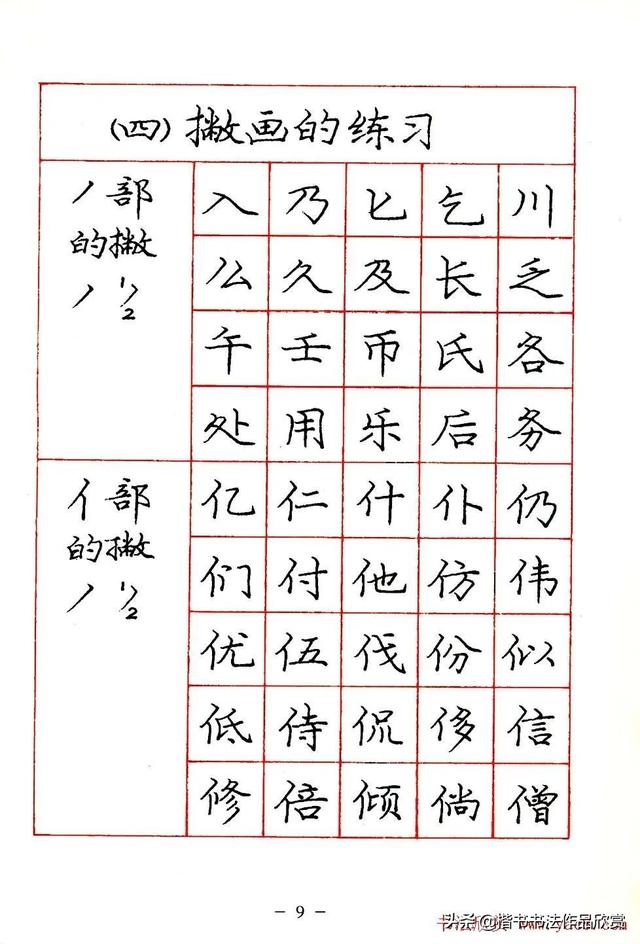 (四)撇画的练习
丿部
的撇
丿 ½
入 乃 匕 乞 川
么 久 及 长 乏
午 壬 币 氏 各
处 用 乐 后 务
亻部
的撇
丿 ½
亿 仁 什 仆 仍
们 付 他 仿 伟
优 伍 伐 份 似
低 侍 侃 侈 信
修 倍 倾 倘 僧
- 9 -
头条@楷书书法作品欣赏